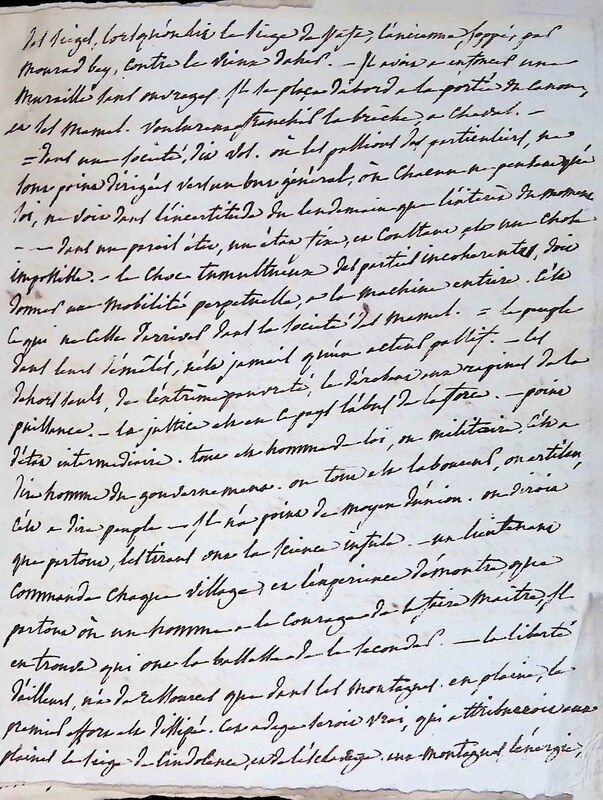 des sieges, lorsqu'on lit le siege de Yafa, l'ancienne Joppé, par
Mourad bey, contre le vieux daher. - Il avoit à enfoncer une
Muraille sans ouvrages. Il se plaça d'abord à la portée du canon,
et les Mamel. voulurent franchir la brèche, à cheval. -
= dans une société, dit vol. où les passions des particuliers, ne
sont point dirigées vers un but général, où Chacun ne pensant qu'à
soi, ne voit dans l'incertitude du lendemain que l'intérêt du moment
- - dans un pareil état, un état fixe, et constant est une chose
impossible. - le Choc tumultueux des partis incohérents, doit
donner une Mobilité perpétuelle, à la machine entière. C'est
Ce qui ne Cesse d'arriver dans la société des Mamel. = le peuple
dans leurs démêlés, n'est jamais qu'un acteur passif. - les
dehors seuls, de l'extrême pauvreté, le dérobent aux rapines de la
puissance. - la justice est en ce pays l'abus de la force. - point
d'état intermédiaire. tout est homme de loi, ou militaire, C'est à
dire homme du gouvernement. ou tout est laboureur, ou artisan,
C'est à dire peuple - Il n'a point de moyen d'union. on diroit
que partout, les tirans ont la science infuse. - un lieutenant
Commande Chaque village; et l'expérience démontre, que
partout où un homme a le courage de se faire maître, il
en trouve qui ont la bassesse de le seconder. - la liberté
d'ailleurs, n'a de ressources que dans les montagnes. en plaine, le
premier effort est dissipé. Cet adage seroit vrai, qui attribueroit aux
plaines le siege de l'indolence, et de l'esclavage. aux montagnes l'énergie,